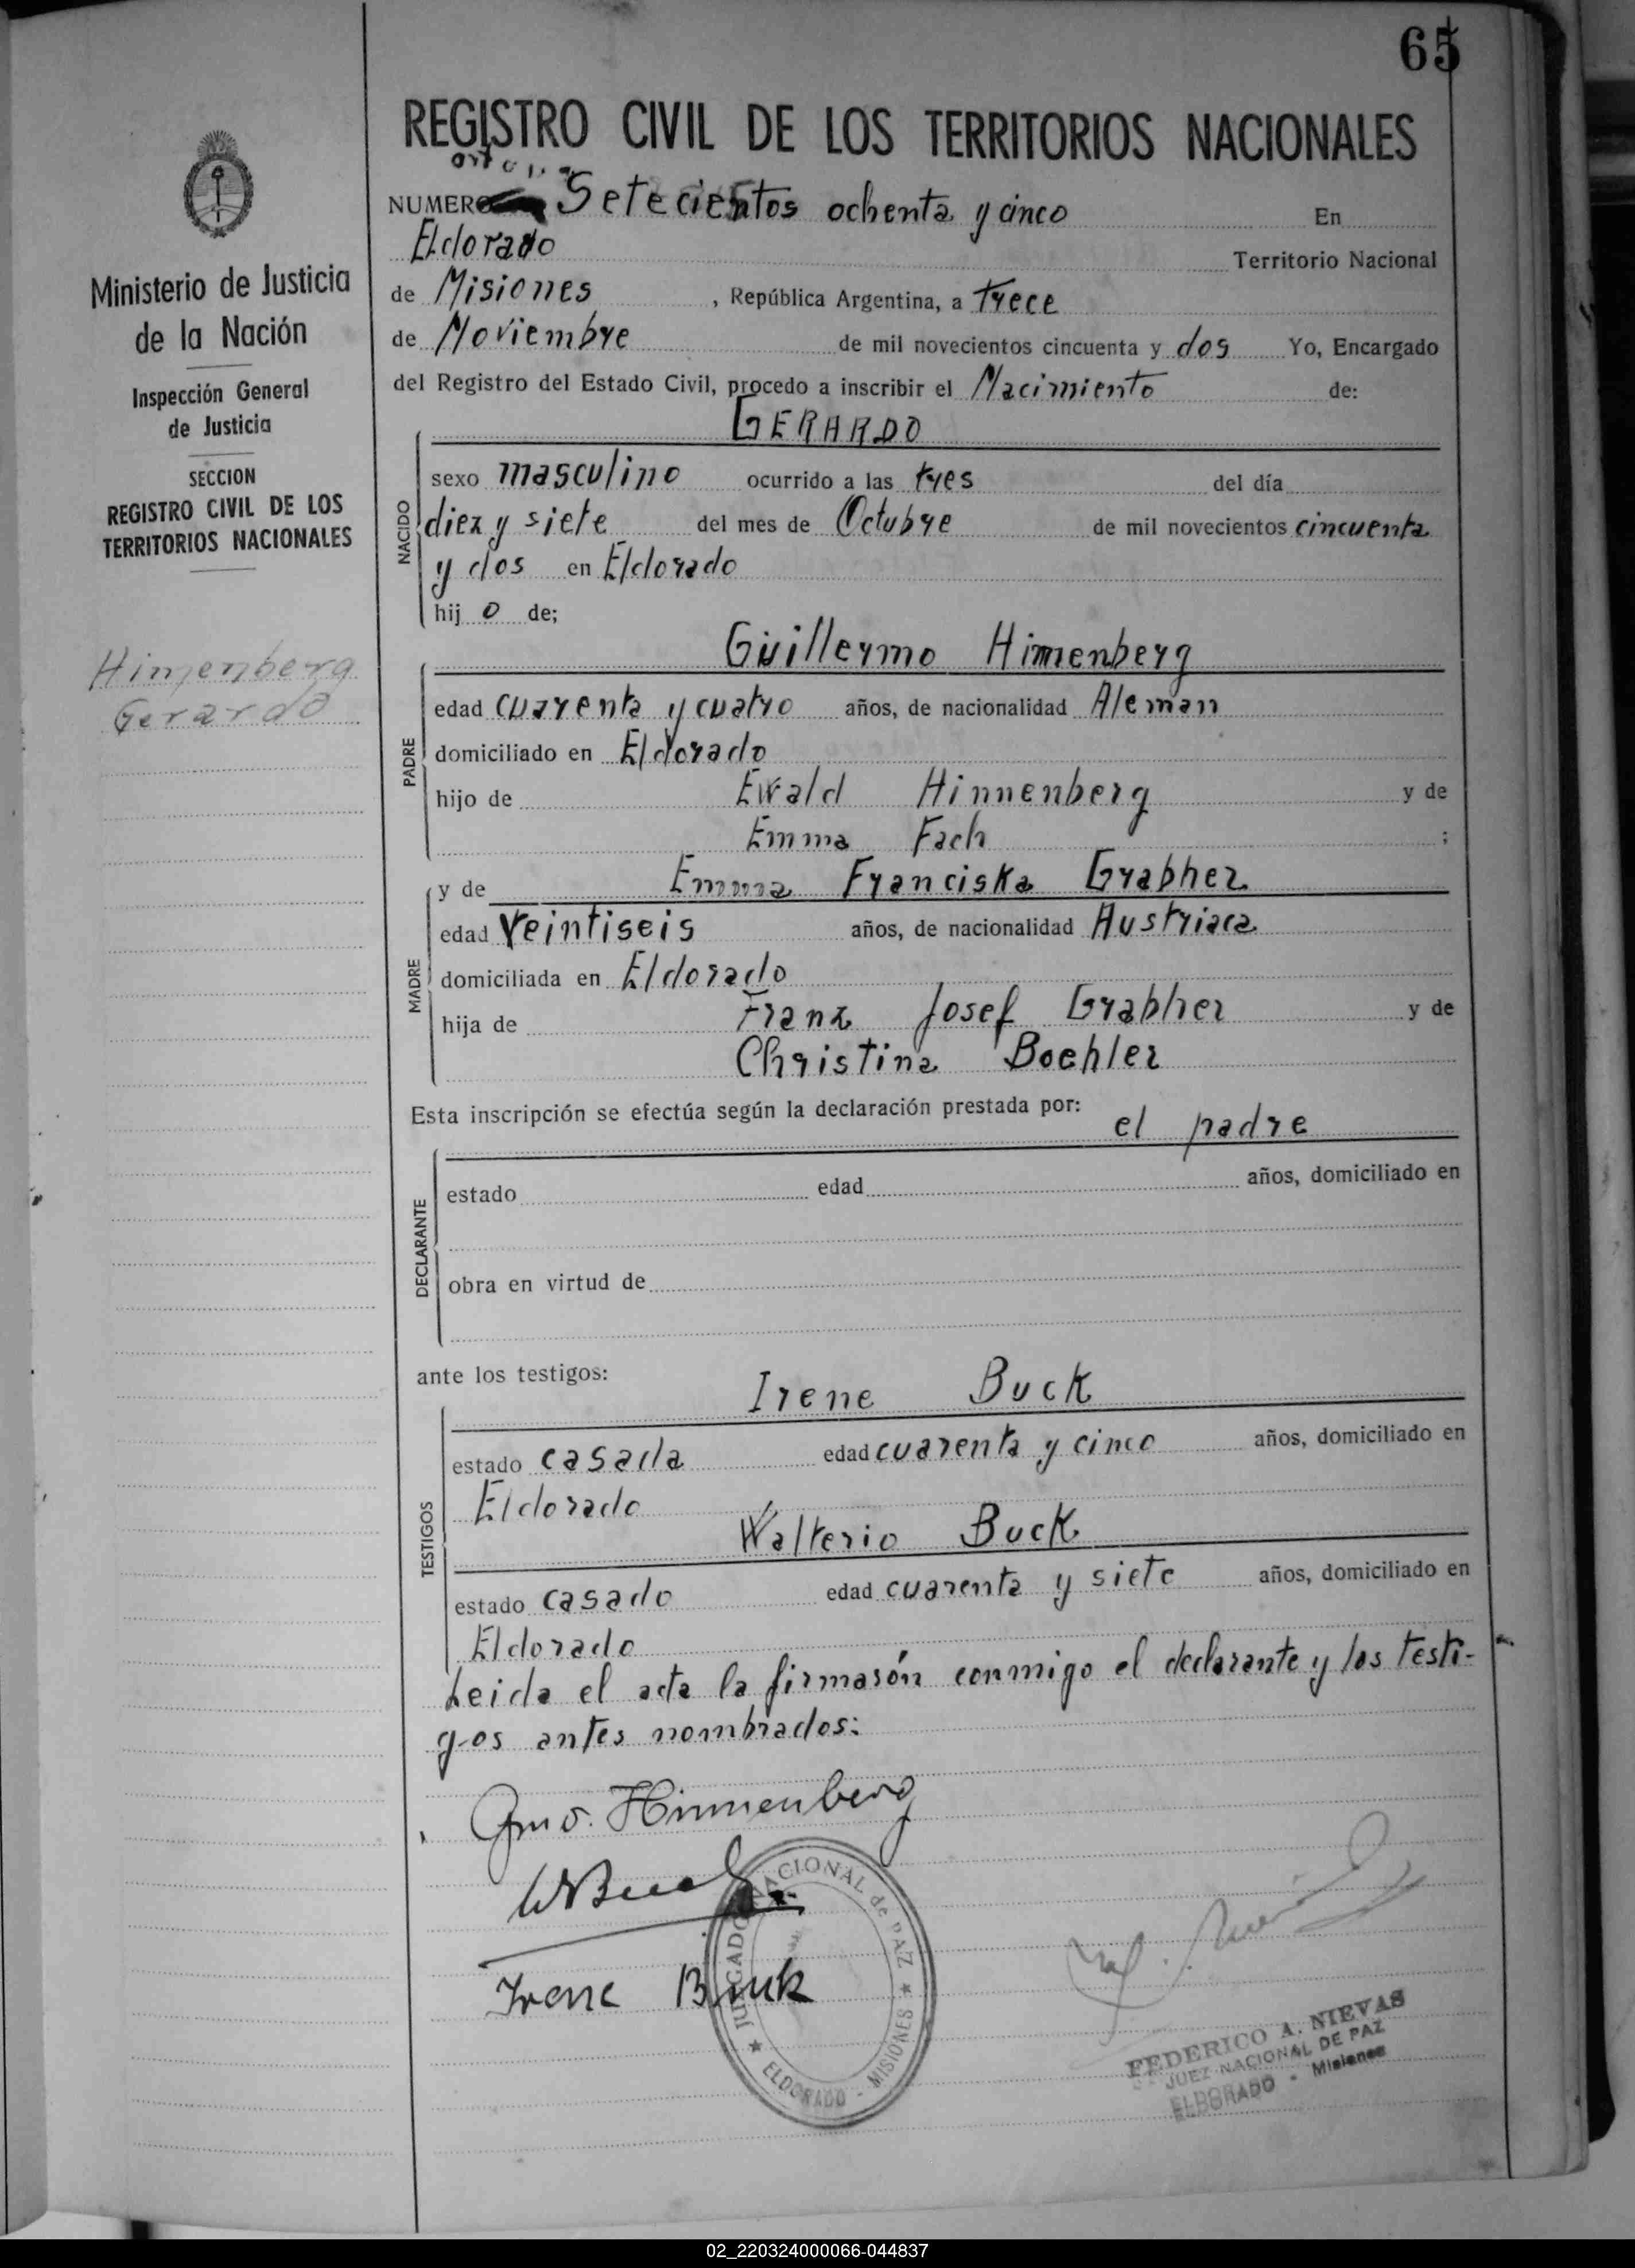 65
REGISTRO CIVIL DE LOS TERRITORIOS NACIONALES
NUMERO Setecientos ochenta y cinco En
Eldorado Territorio Nacional
de Misiones , República Argentina, a trece
de Noviembre de mil novecientos cincuenta y dos Yo, Encargado
del Registro del Estado Civil, procedo a inscribir el Nacimiento de:
GERARDO
NACIDO
sexo masculino ocurrido a las tres del día
diez y siete del mes de Octubre de mil novecientos cincuenta
y dos en Eldorado
hij o de;
Guillermo Himenberg
PADRE
edad cuarenta y cuatro años, de nacionalidad Aleman
domiciliado en Eldorado
hijo de Ewald Hinnenberg y de
Emma Fach ;
MADRE
y de Emma Franciska Grabher
edad Veintiseis años, de nacionalidad Austriaca
domiciliada en Eldorado
hija de Franz Josef Grabher y de
Christina Boehler
Esta inscripción se efectúa según la declaración prestada por:
el padre
DECLARANTE
estado edad años, domiciliado en
obra en virtud de
ante los testigos:
Irene Buck
TESTIGOS
estado casada edad cuarenta y cinco años, domiciliado en
Eldorado
Walterio Buck
estado casado edad cuarenta y siete años, domiciliado en
Eldorado
Leida el acta la firmarón conmigo el declarante y los testi-
gos antes nombrados:
Gmo. Hinnenberg
W Buck
Irene Buck
JUZGADO NACIONAL de PAZ
ELDORADO - MISIONES
FEDERICO A. NIEVAS
JUEZ NACIONAL DE PAZ
ELDORADO - Misiones
Ministerio de Justicia
de la Nación
Inspección General
de Justicia
SECCION
REGISTRO CIVIL DE LOS
TERRITORIOS NACIONALES
Himenberg
Gerardo
02_220324000066-044837